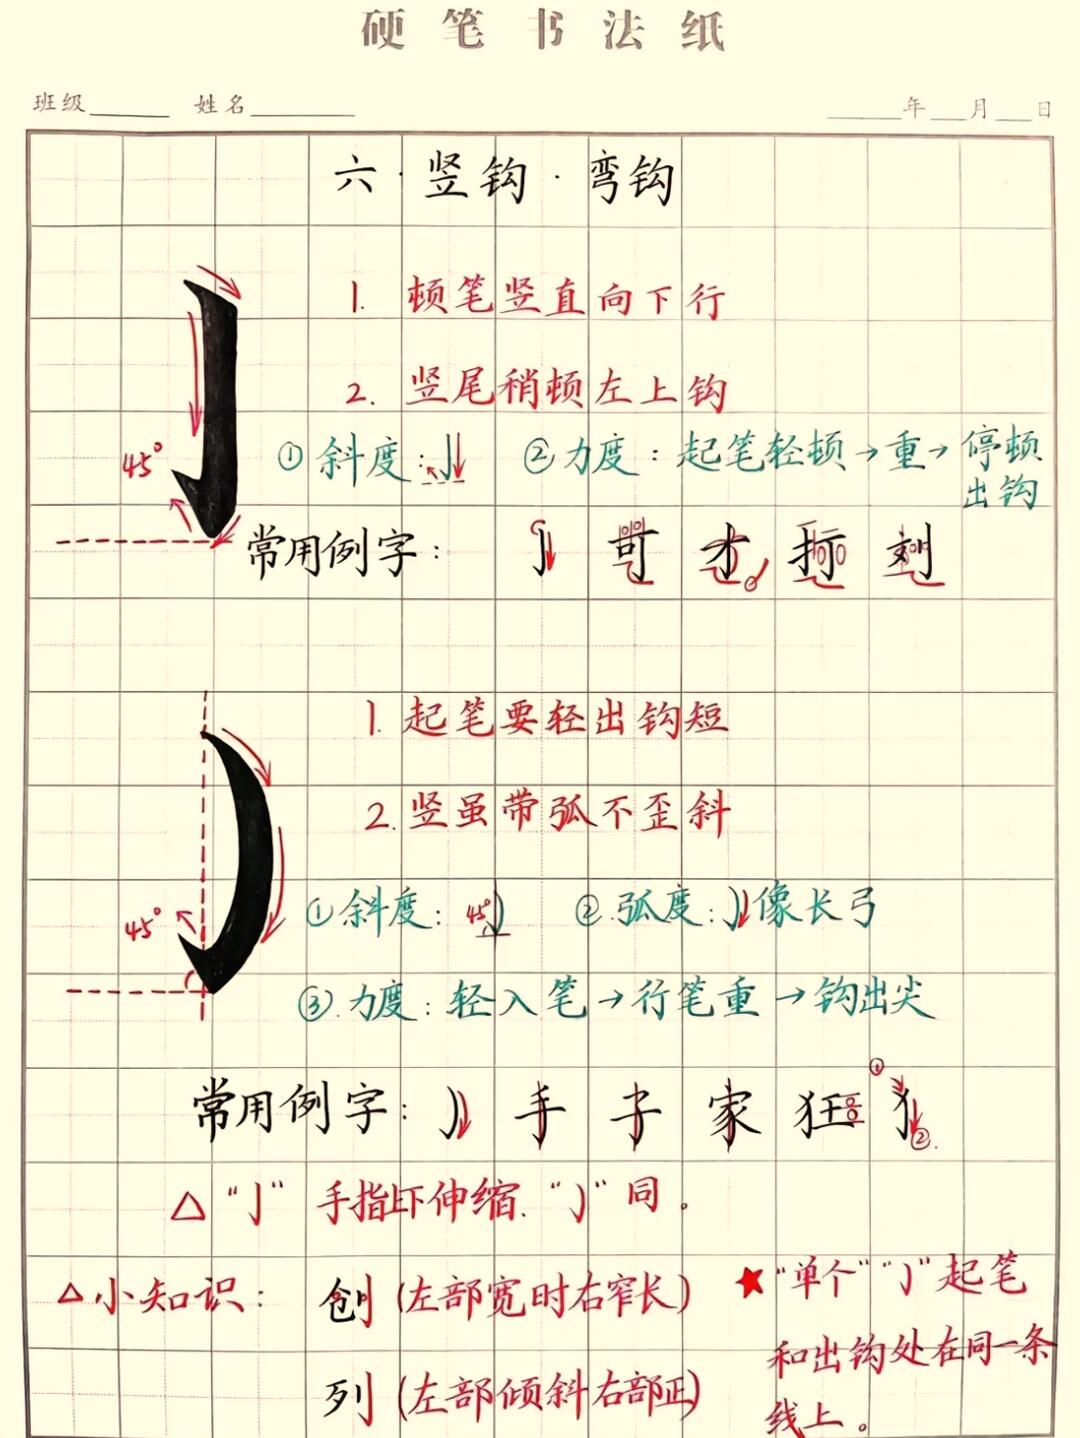 硬笔书法纸
班级 姓名 年 月 日
六·竖钩·弯钩
1. 顿笔竖直向下行
2. 竖尾稍顿左上钩
45°
①斜度：亅 ②力度：起笔轻顿→重→停顿
出钩
常用例字： 亅 可 才 打 刘
1. 起笔要轻出钩短
2. 竖虽带弧不歪斜
45°
①斜度：45° ②.弧度：像长弓
③.力度：轻入笔→行笔重→钩出尖
常用例字： 手 子 家 狂 犭
① ②
△ "亅" 手指上下伸缩. "㇁" 同。
△小知识： 创 (左部宽时右窄长)
列 (左部倾斜右部正)
★"单个" "㇁" 起笔
和出钩处在同一条
线上。